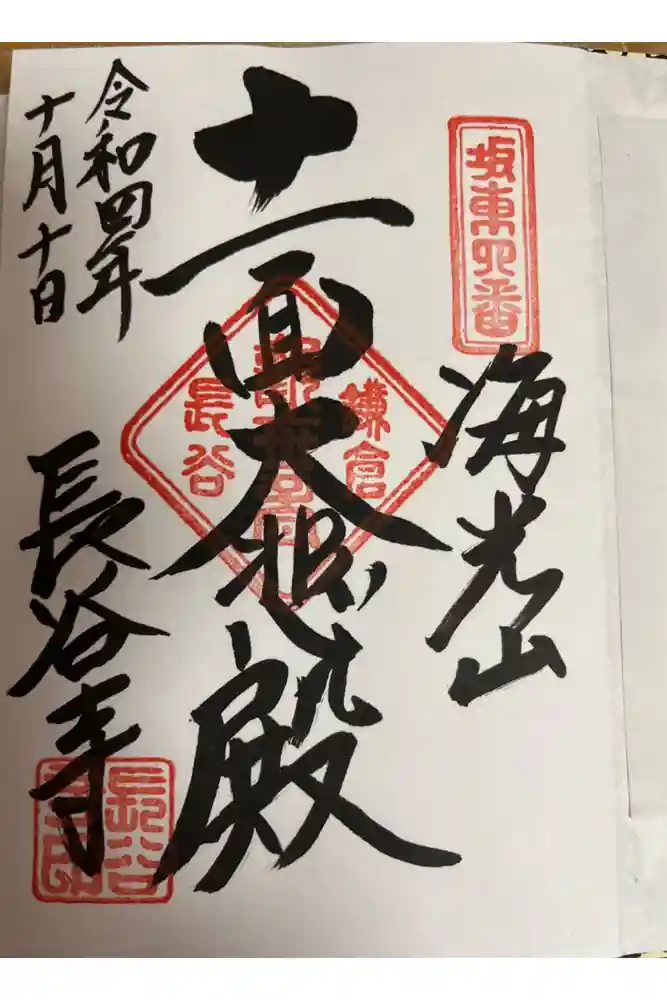 坂東四番
海光山
十一面大悲殿
鎌倉
長谷
令和四年
十月十日
長谷寺
長谷
寺印